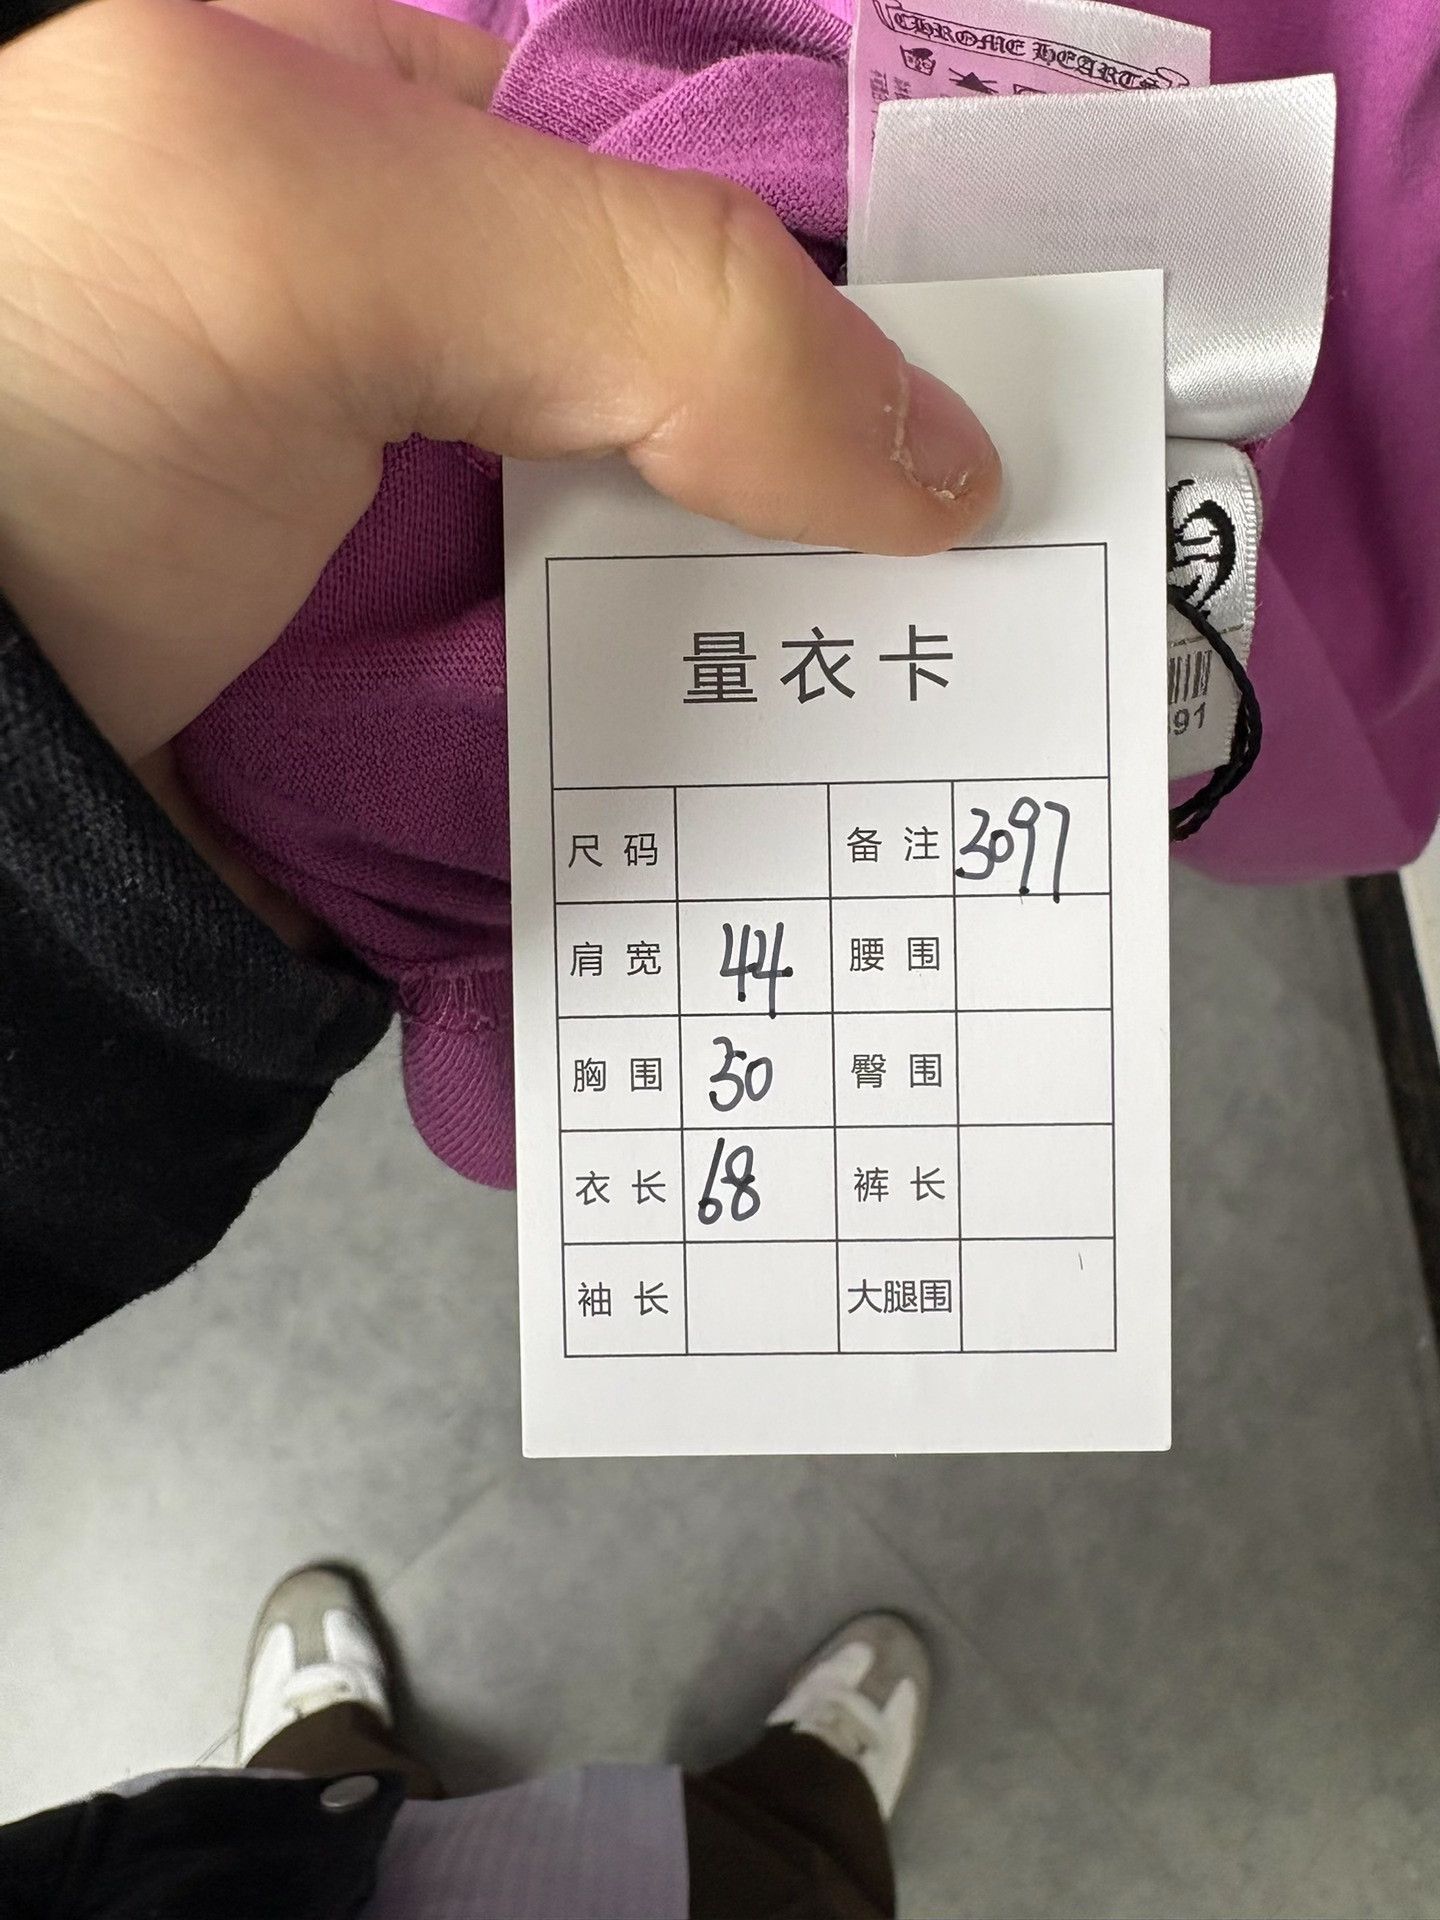 CHROME HEARTS
91
量衣卡
尺码 备注 3097
肩宽 44 腰围
胸围 50 臀围
衣长 68 裤长
袖长 大腿围